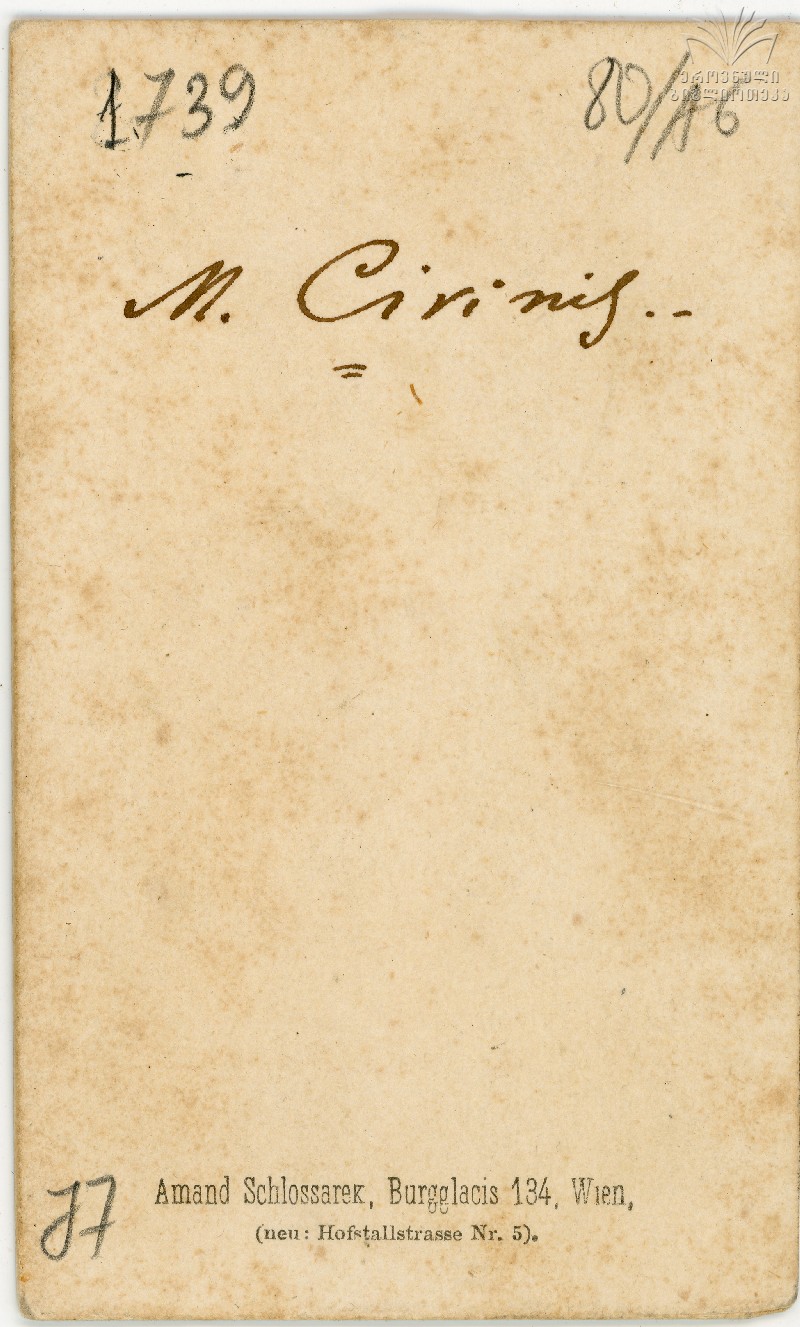 1739
80/
ეროვნული
ბიბლიოთეკა
M. Civinis..
Amand Schlossarek, Burgglacis 134, Wien,
(neu: Hofstallstrasse Nr. 5).